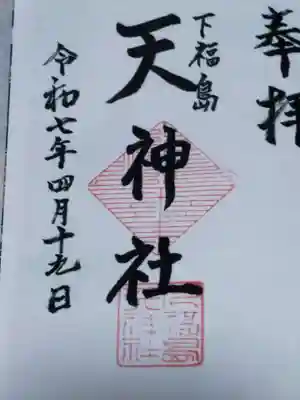 奉拝
下福島
天神社
令和七年四月十九日